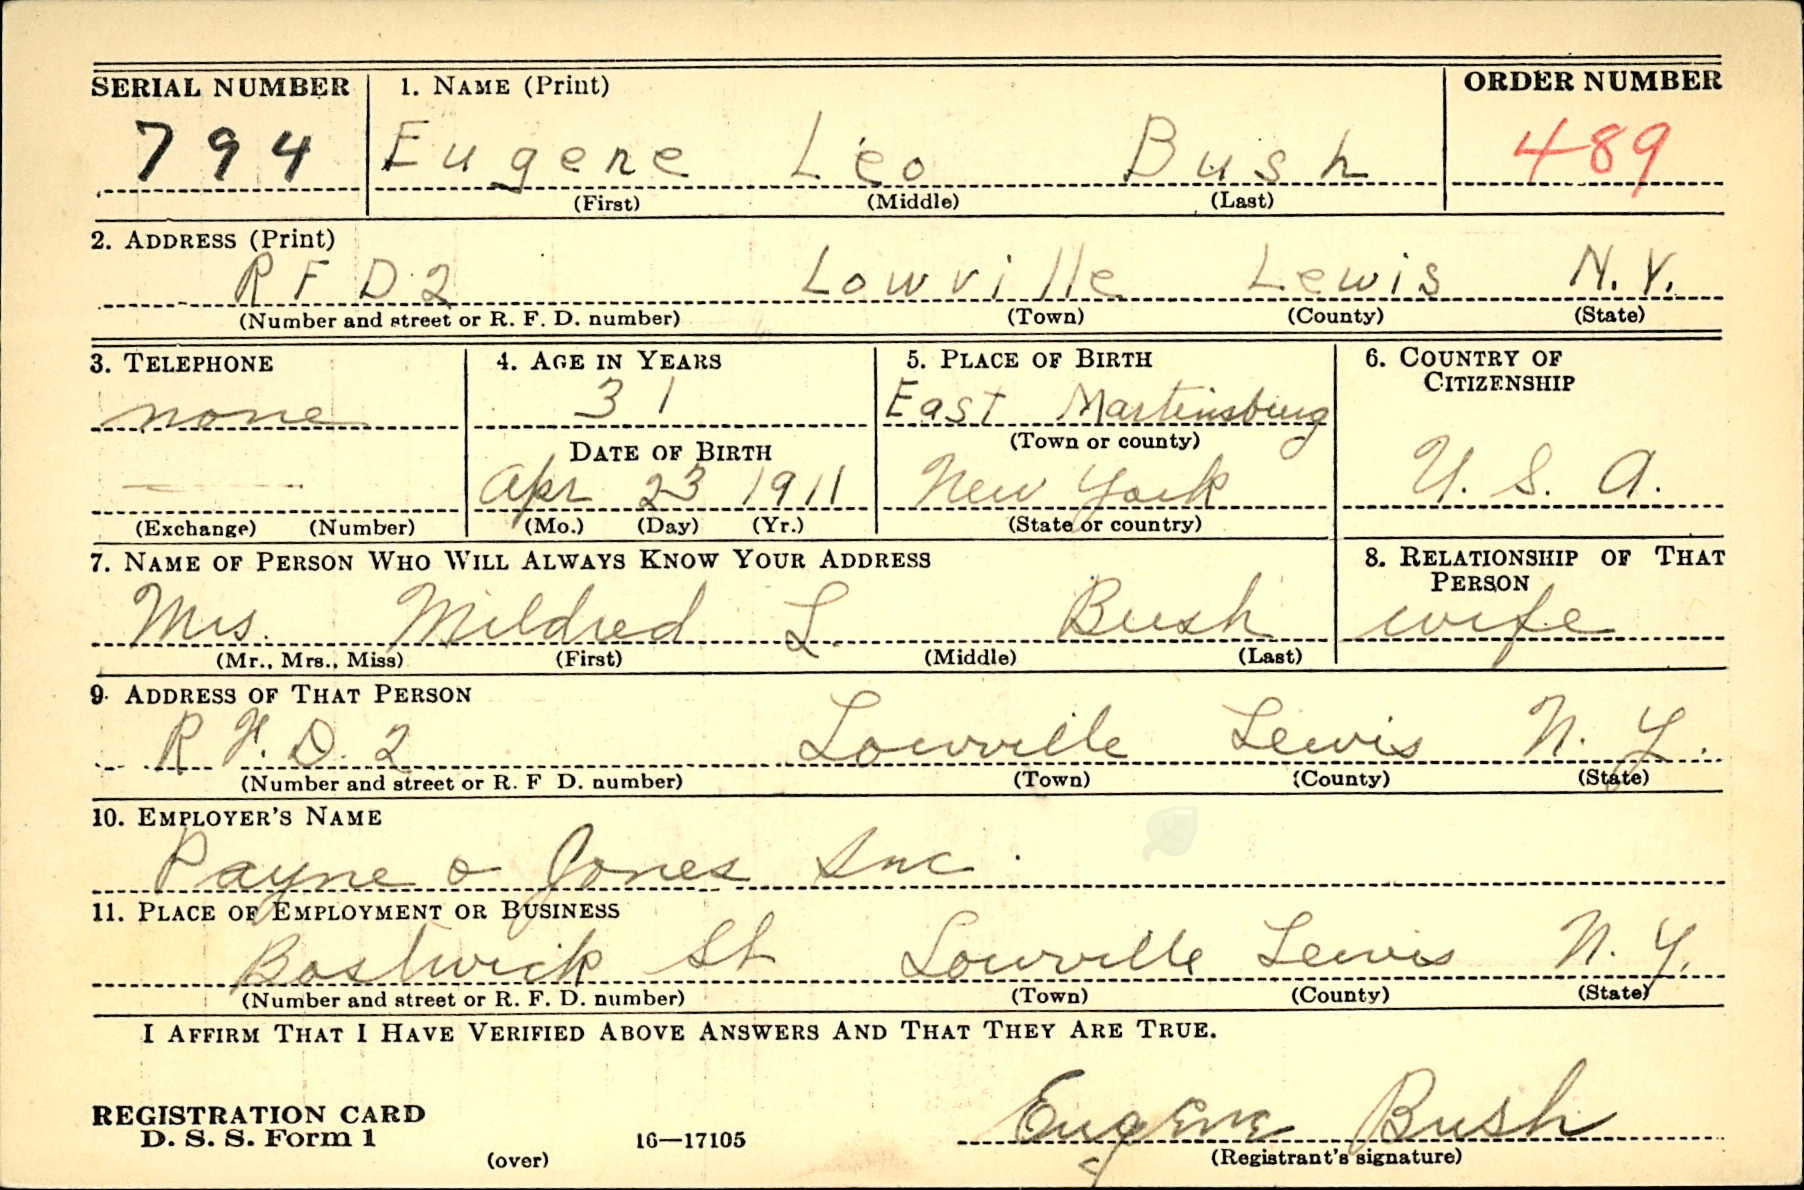 SERIAL NUMBER 1. NAME (Print) ORDER NUMBER
794 Eugene Leo Bush 489
(First) (Middle) (Last)
2. ADDRESS (Print)
R F D 2 Lowville Lewis N.Y.
(Number and street or R. F. D. number) (Town) (County) (State)
3. TELEPHONE 4. AGE IN YEARS 5. PLACE OF BIRTH 6. COUNTRY OF CITIZENSHIP
none 31 East Martinsburg
DATE OF BIRTH (Town or county)
Apr 23 1911 New York U. S. A.
(Exchange) (Number) (Mo.) (Day) (Yr.) (State or country)
7. NAME OF PERSON WHO WILL ALWAYS KNOW YOUR ADDRESS 8. RELATIONSHIP OF THAT PERSON
Mrs. Mildred L. Bush wife
(Mr., Mrs., Miss) (First) (Middle) (Last)
9. ADDRESS OF THAT PERSON
R.F.D. 2 Lowville Lewis N. Y.
(Number and street or R. F D. number) (Town) (County) (State)
10. EMPLOYER'S NAME
Payne & Jones Inc.
11. PLACE OF EMPLOYMENT OR BUSINESS
Bostwick St Lowville Lewis N. Y.
(Number and street or R. F. D. number) (Town) (County) (State)
I AFFIRM THAT I HAVE VERIFIED ABOVE ANSWERS AND THAT THEY ARE TRUE.
Eugene Bush
REGISTRATION CARD
D. S. S. Form 1 16—17105
(over) (Registrant's signature)